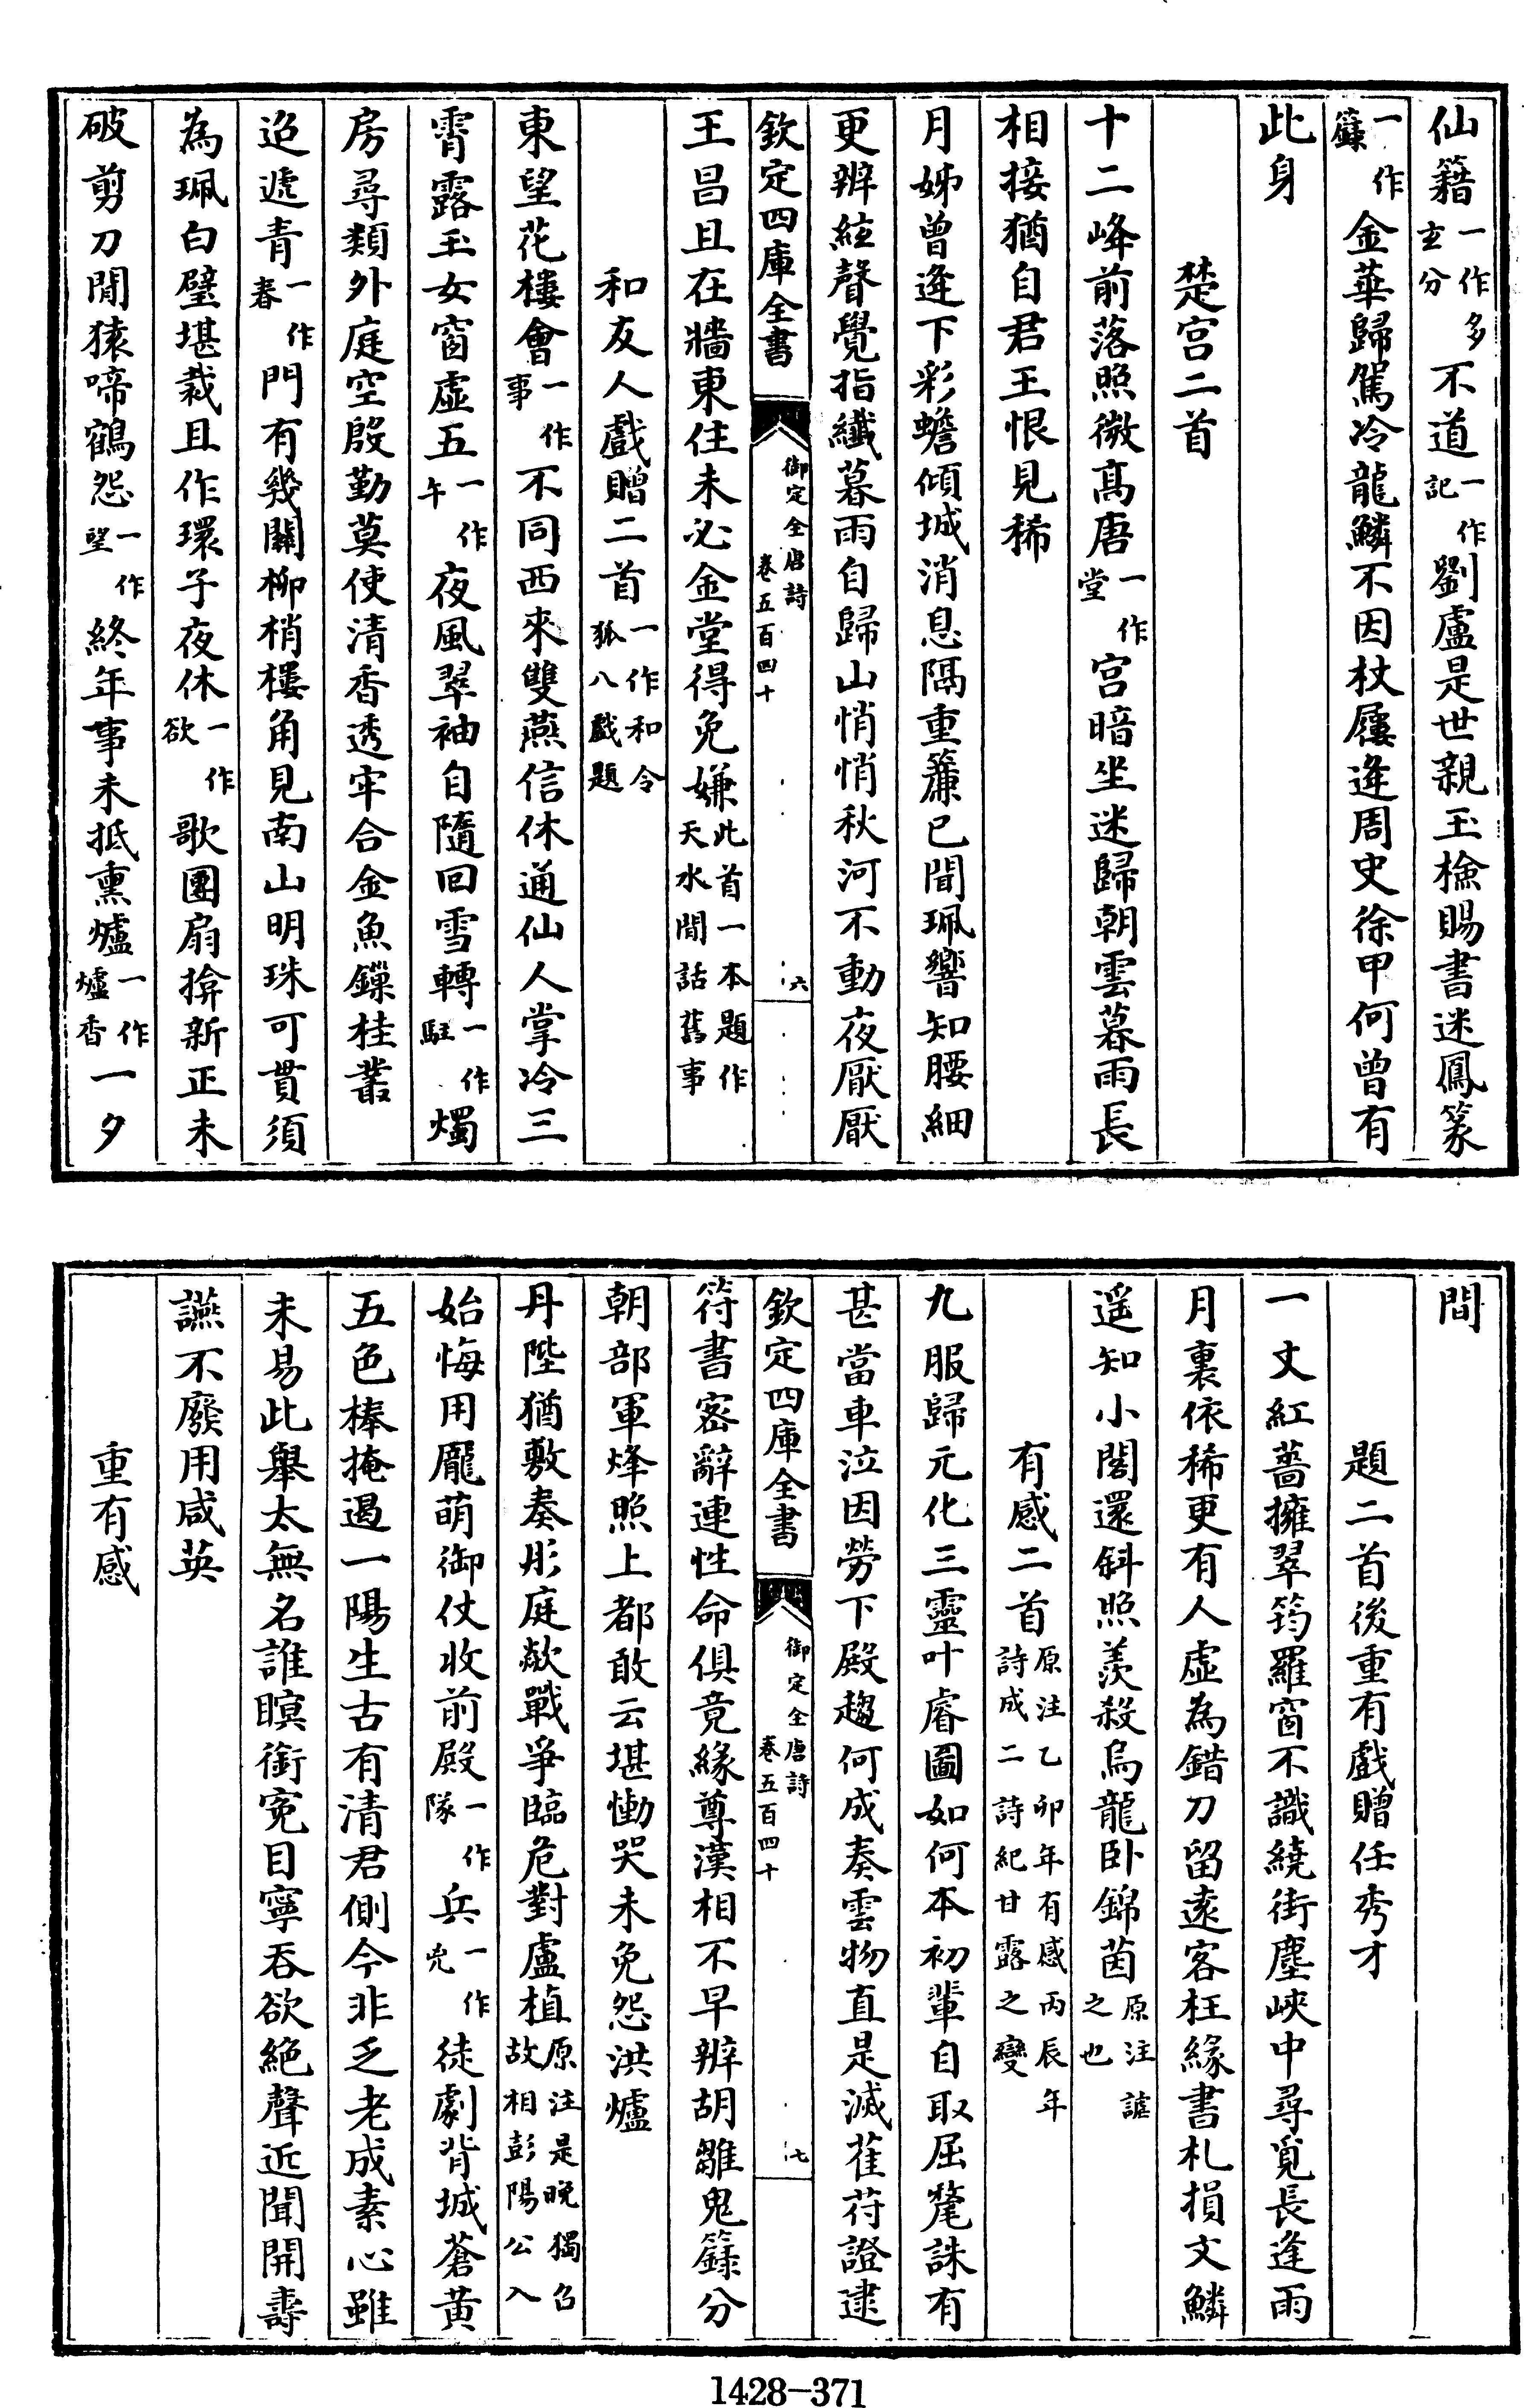 仙籍一作多玄分不道一作記劉盧是世親玉檢賜書迷鳳篆
一作籙金華歸駕冷龍鱗不因杖屨逢周史徐甲何曾有
此身
楚宮二首
十二峰前落照微高唐一作堂宮暗坐迷歸朝雲暮雨長
相接猶自君王恨見稀
月姊曾逢下彩蟾傾城消息隔重簾已聞珮響知腰細
更辨絃聲覺指纖暮雨自歸山悄悄秋河不動夜厭厭
欽定四庫全書 御定全唐詩卷五百四十 六
王昌且在牆東住未必金堂得免嫌此首一本題作天水閒話舊事
和友人戲贈二首一作和令狐八戲題
東望花樓會一作事不同西來雙燕信休通仙人掌冷三
霄露玉女窗虛五一作午夜風翠袖自隨回雪轉一作駐燭
房尋類外庭空殷勤莫使清香透牢合金魚鏁桂叢
迢遞青一作春門有幾關柳梢樓角見南山明珠可貫須
為珮白璧堪裁且作環子夜休一作欲歌團扇揜新正未
破剪刀閒猿啼鶴怨一作望終年事未抵熏爐一作爐香一夕
間
題二首後重有戲贈任秀才
一丈紅薔擁翠筠羅窗不識繞街塵峽中尋覓長逢雨
月裏依稀更有人虛為錯刀留遠客枉緣書札損文鱗
遥知小閣還斜照羨殺烏龍卧錦茵原注謔之也
有感二首原注乙卯年有感丙辰年詩成二詩紀甘露之變
九服歸元化三靈叶睿圖如何本初輩自取屈氂誅有
甚當車泣因勞下殿趨何成奏雲物直是滅萑苻證逮
欽定四庫全書 御定全唐詩卷五百四十 七
符書密辭連性命俱竟緣尊漢相不早辨胡雛鬼籙分
朝部軍烽照上都敢云堪慟哭未免怨洪爐
丹陛猶敷奏彤庭歘戰爭臨危對盧植原注是晚獨召故相彭陽公入
始悔用龎萌御仗收前殿一作隊兵一作兇徒劇背城蒼黃
五色棒掩遏一陽生古有清君側今非乏老成素心雖
未易此舉太無名誰瞑銜寃目寧吞欲絕聲近聞開壽
讌不廢用咸英
重有感
1428-371